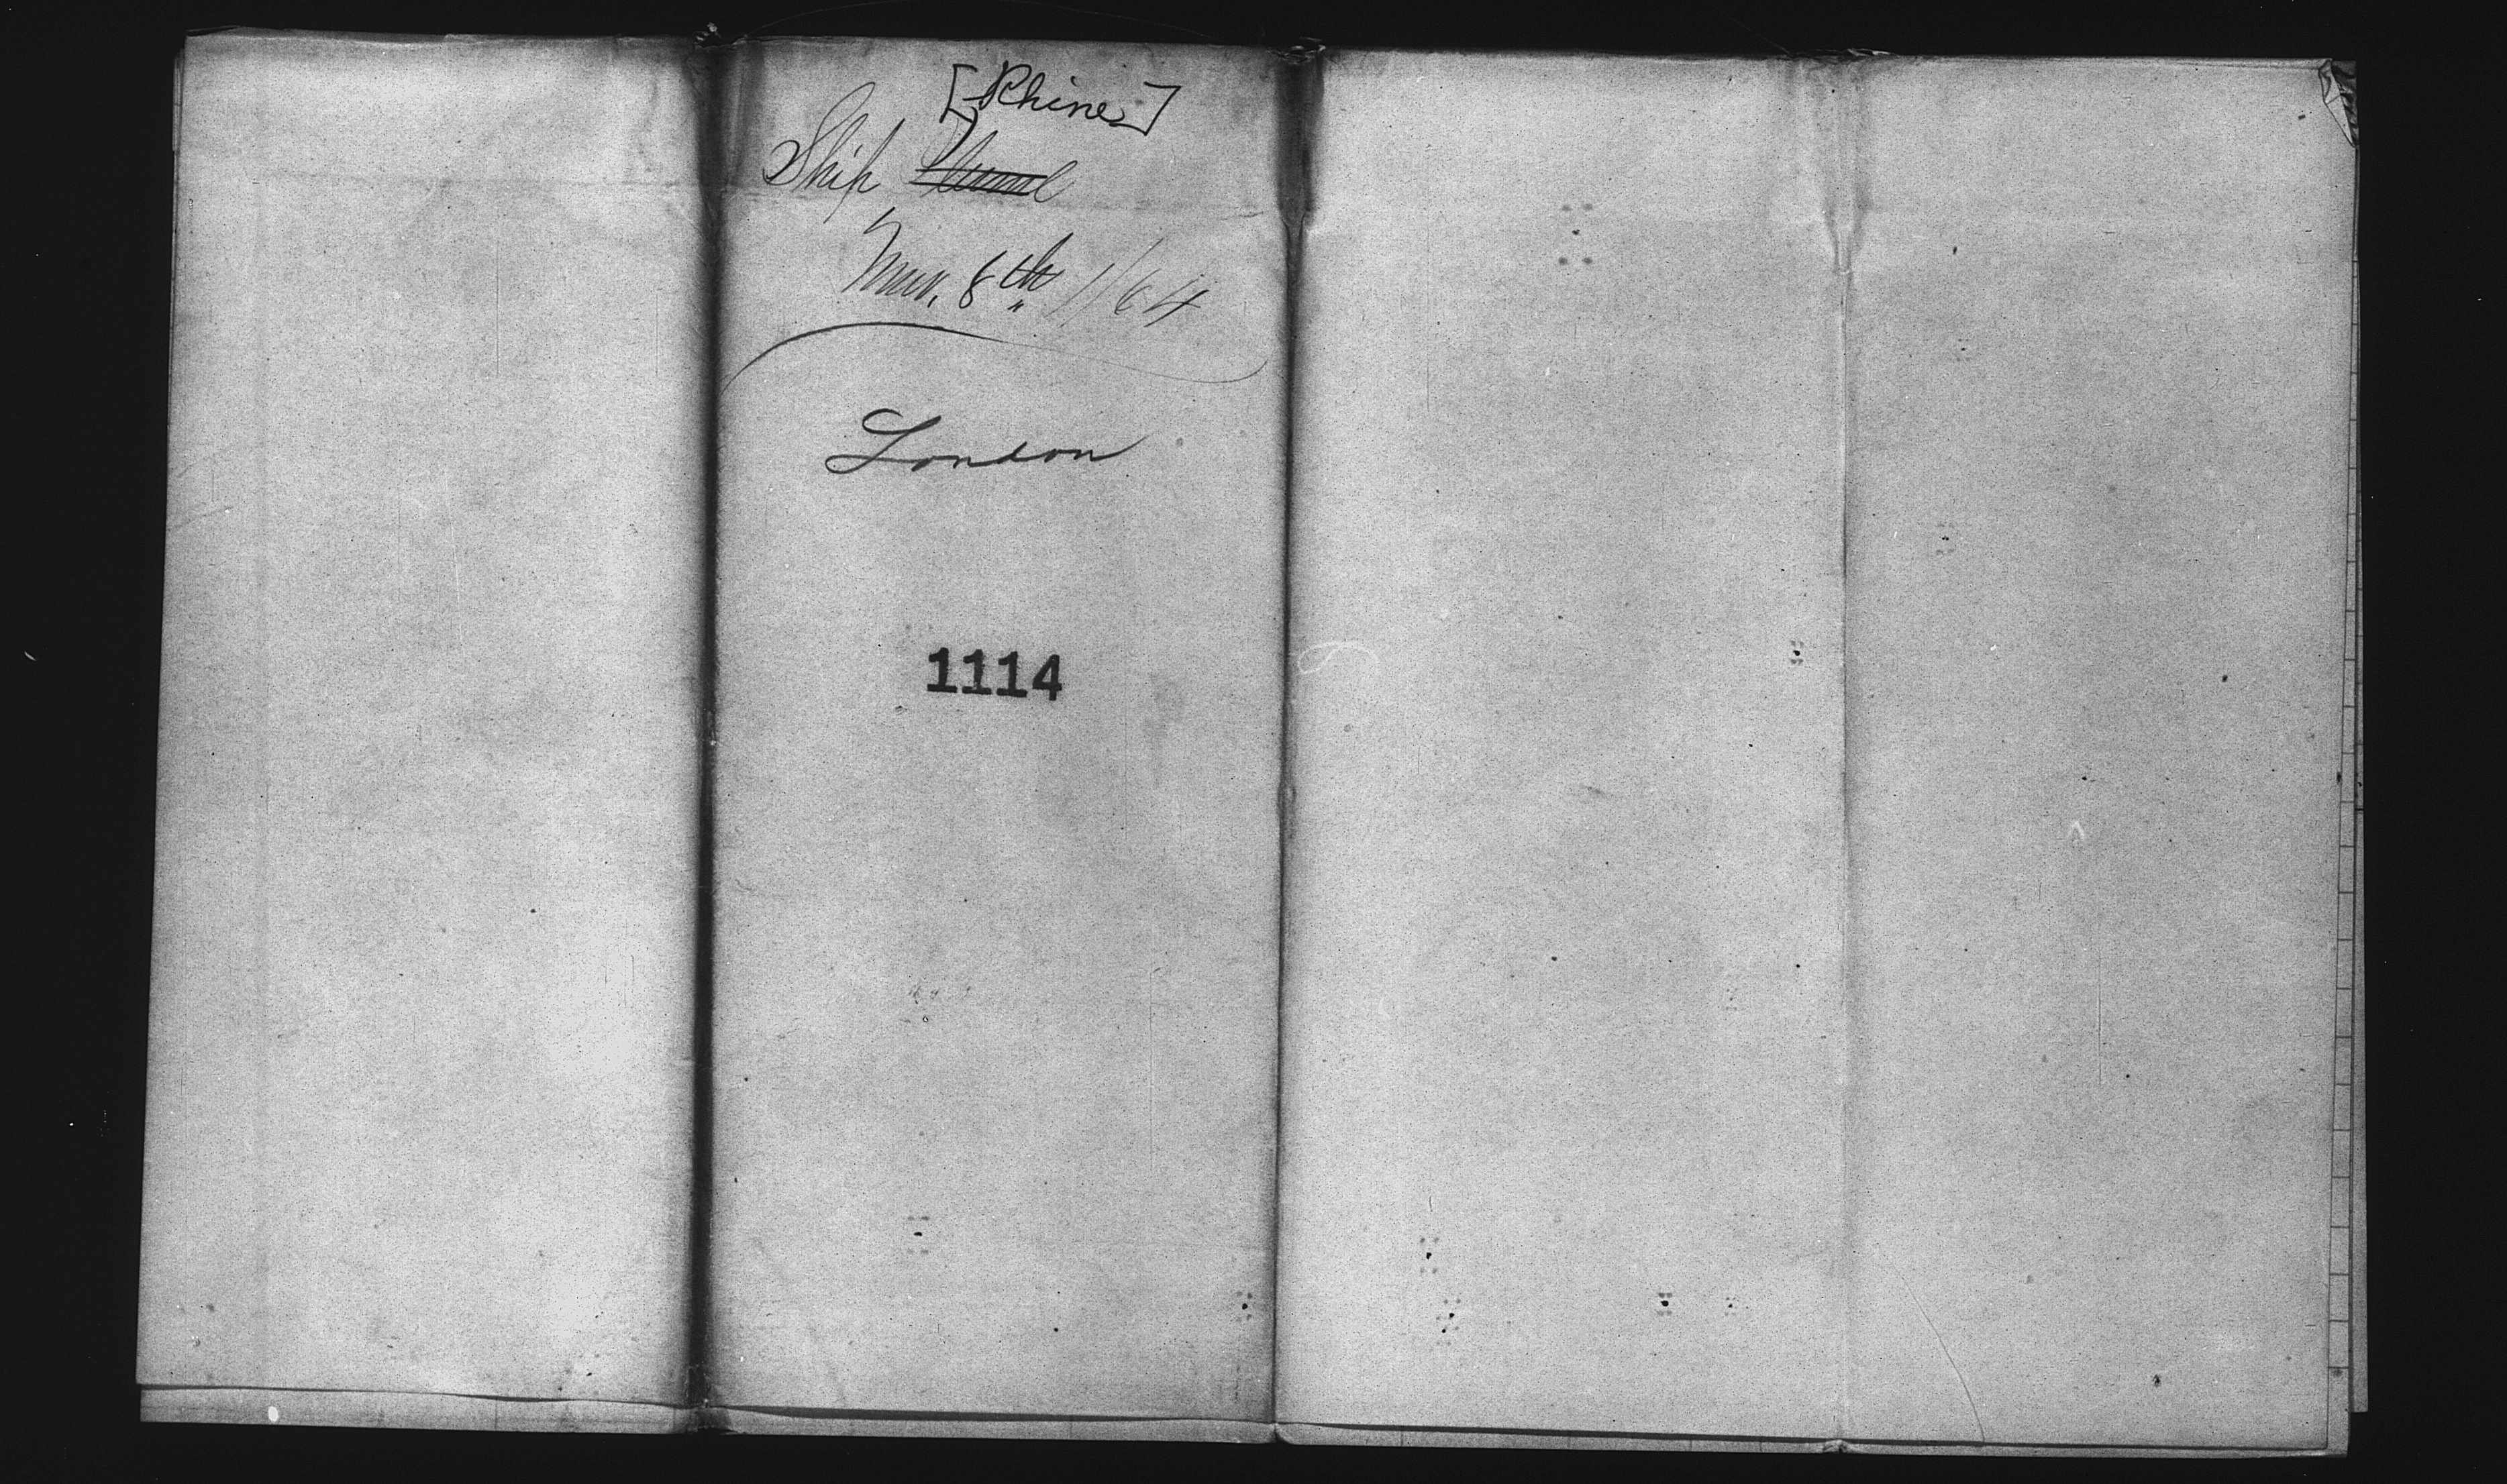 [Rhine]
Ship
8th /64
London
1114